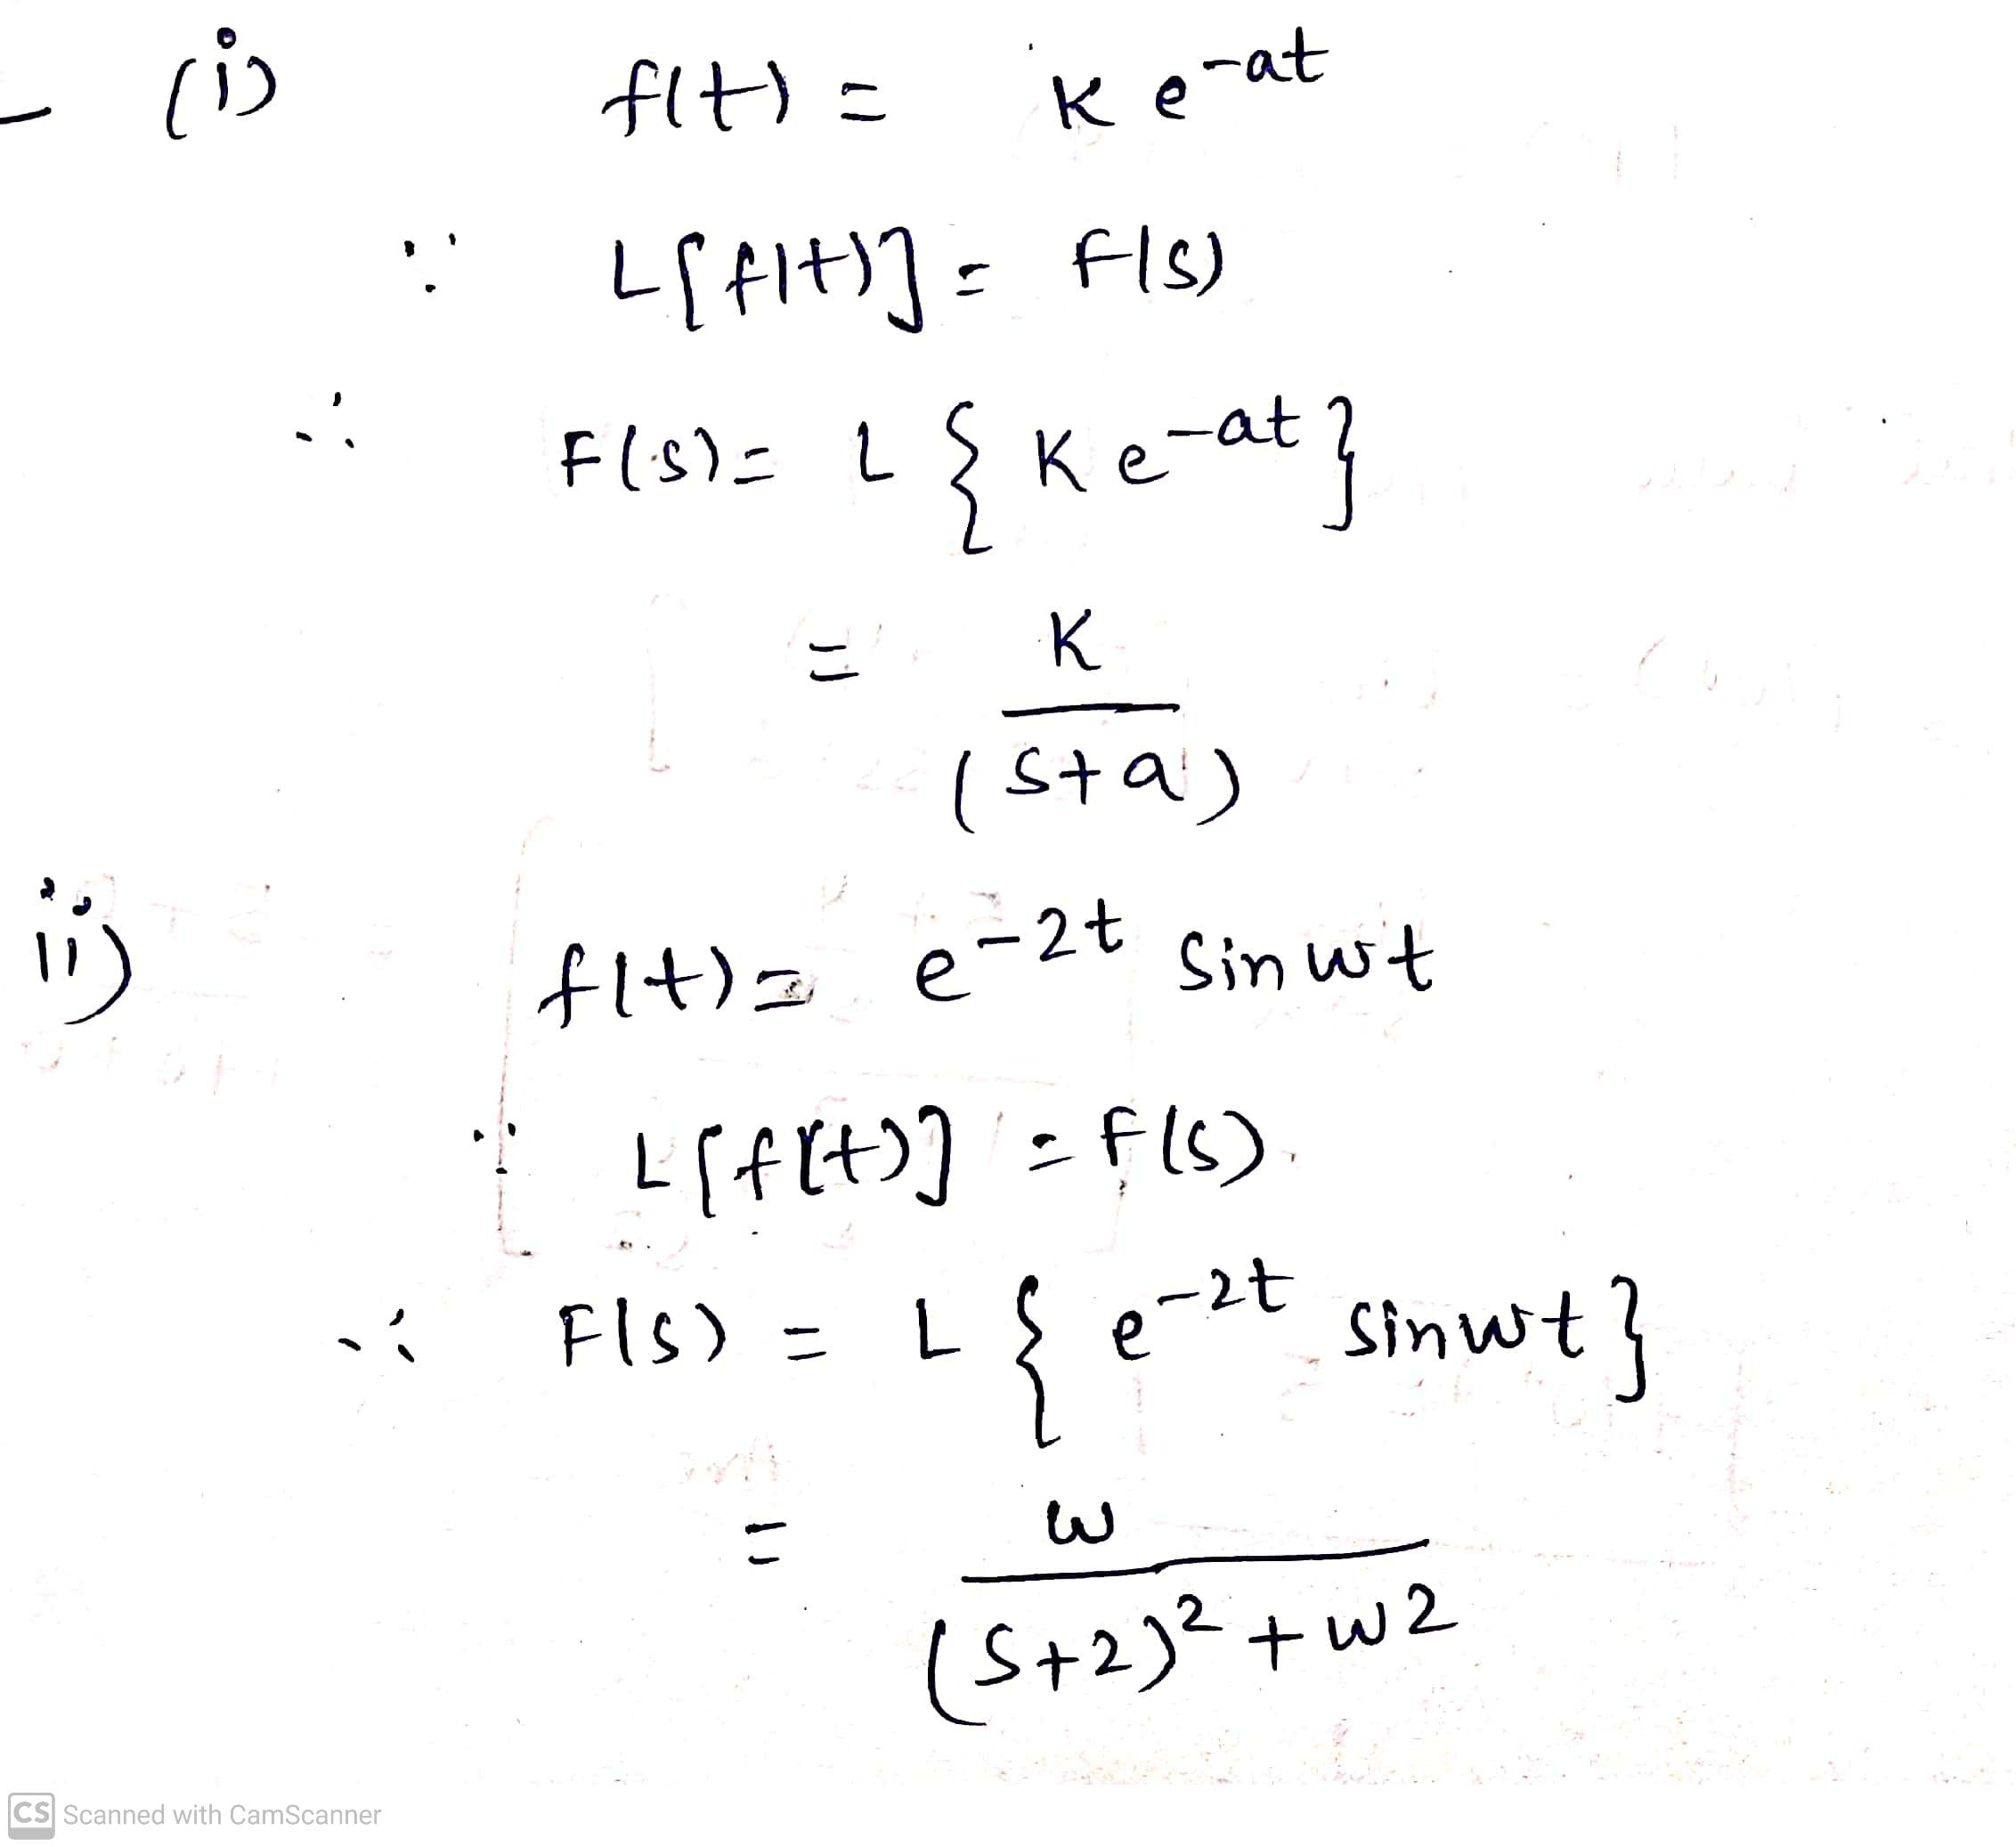 (i) f(t) = K e^-at
∵ L[f(t)] = F(s)
∴ F(s) = L { K e^-at }
= K
(s+a)
ii) f(t) = e^-2t sin wt
∵ L[f(t)] = F(s)
∴ F(s) = L { e^-2t sin wt }
= w
(s+2)^2 + w2
CS Scanned with CamScanner